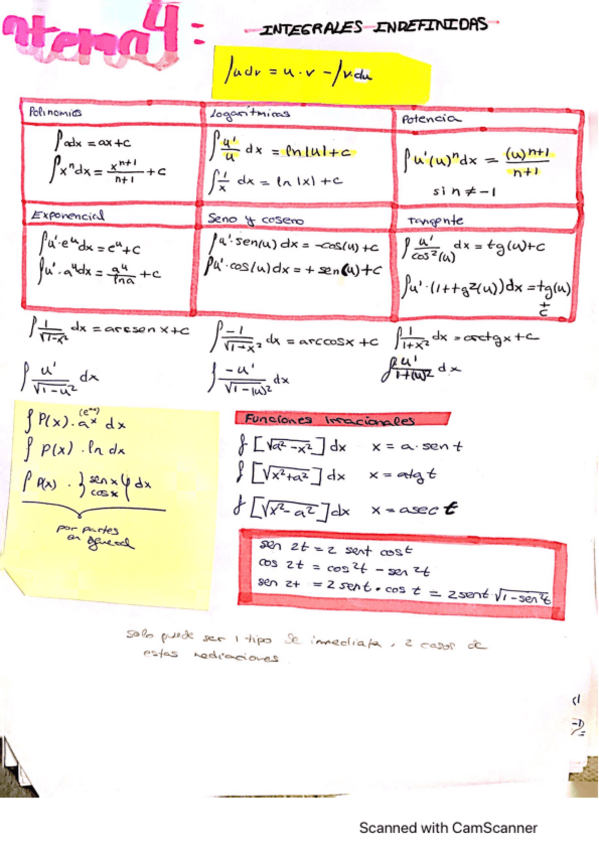 tema 4: INTEGRALES INDEFINIDAS
∫udv = u·v - ∫v.du
Polinomios
∫adx = ax+c
∫xⁿdx = xⁿ⁺¹/n+1 + c
Logarítmicas
∫u'/u dx = ln|u|+c
∫1/x dx = ln|x|+c
Potencia
∫u'(u)ⁿdx = (u)ⁿ⁺¹/n+1
si n≠-1
Exponencial
∫u'·eᵘdx=eᵘ+c
∫u'·aᵘdx=aᵘ/lna +c
Seno y coseno
∫u'·sen(u)dx = -cos(u)+c
∫u'·cos(u)dx = + sen(u)+c
Tangente
∫u'/cos²(u) dx = tg(u)+c
∫u'·(1+tg²(u))dx = tg(u)
+
c
∫1/√1-x² dx = arcsen x+c
∫-1/√1-x² dx = arccosx +c
∫1/1+x² dx = arctgx+c
∫u'/√1-u² dx
∫-u'/√1-(u)² dx
∫u'/1+(u)² dx
(eˣ)
∫P(x).aˣ dx
∫P(x).ln dx
∫P(x) . {senx cosx} dx
por partes
en general
Funciones Irracionales
∫[√a²-x²]dx x = a·sent
∫[√x²+a²]dx x = atgt
∫[√x²-a²]dx x = asect
sen 2t = 2 sent cost
cos 2t = cos²t - sen²t
sen 2t = 2sent·cos t = 2sent √1-sen²t
solo puede ser 1 tipo de inmediata, 2 casos de
estas mediaciones
Scanned with CamScanner